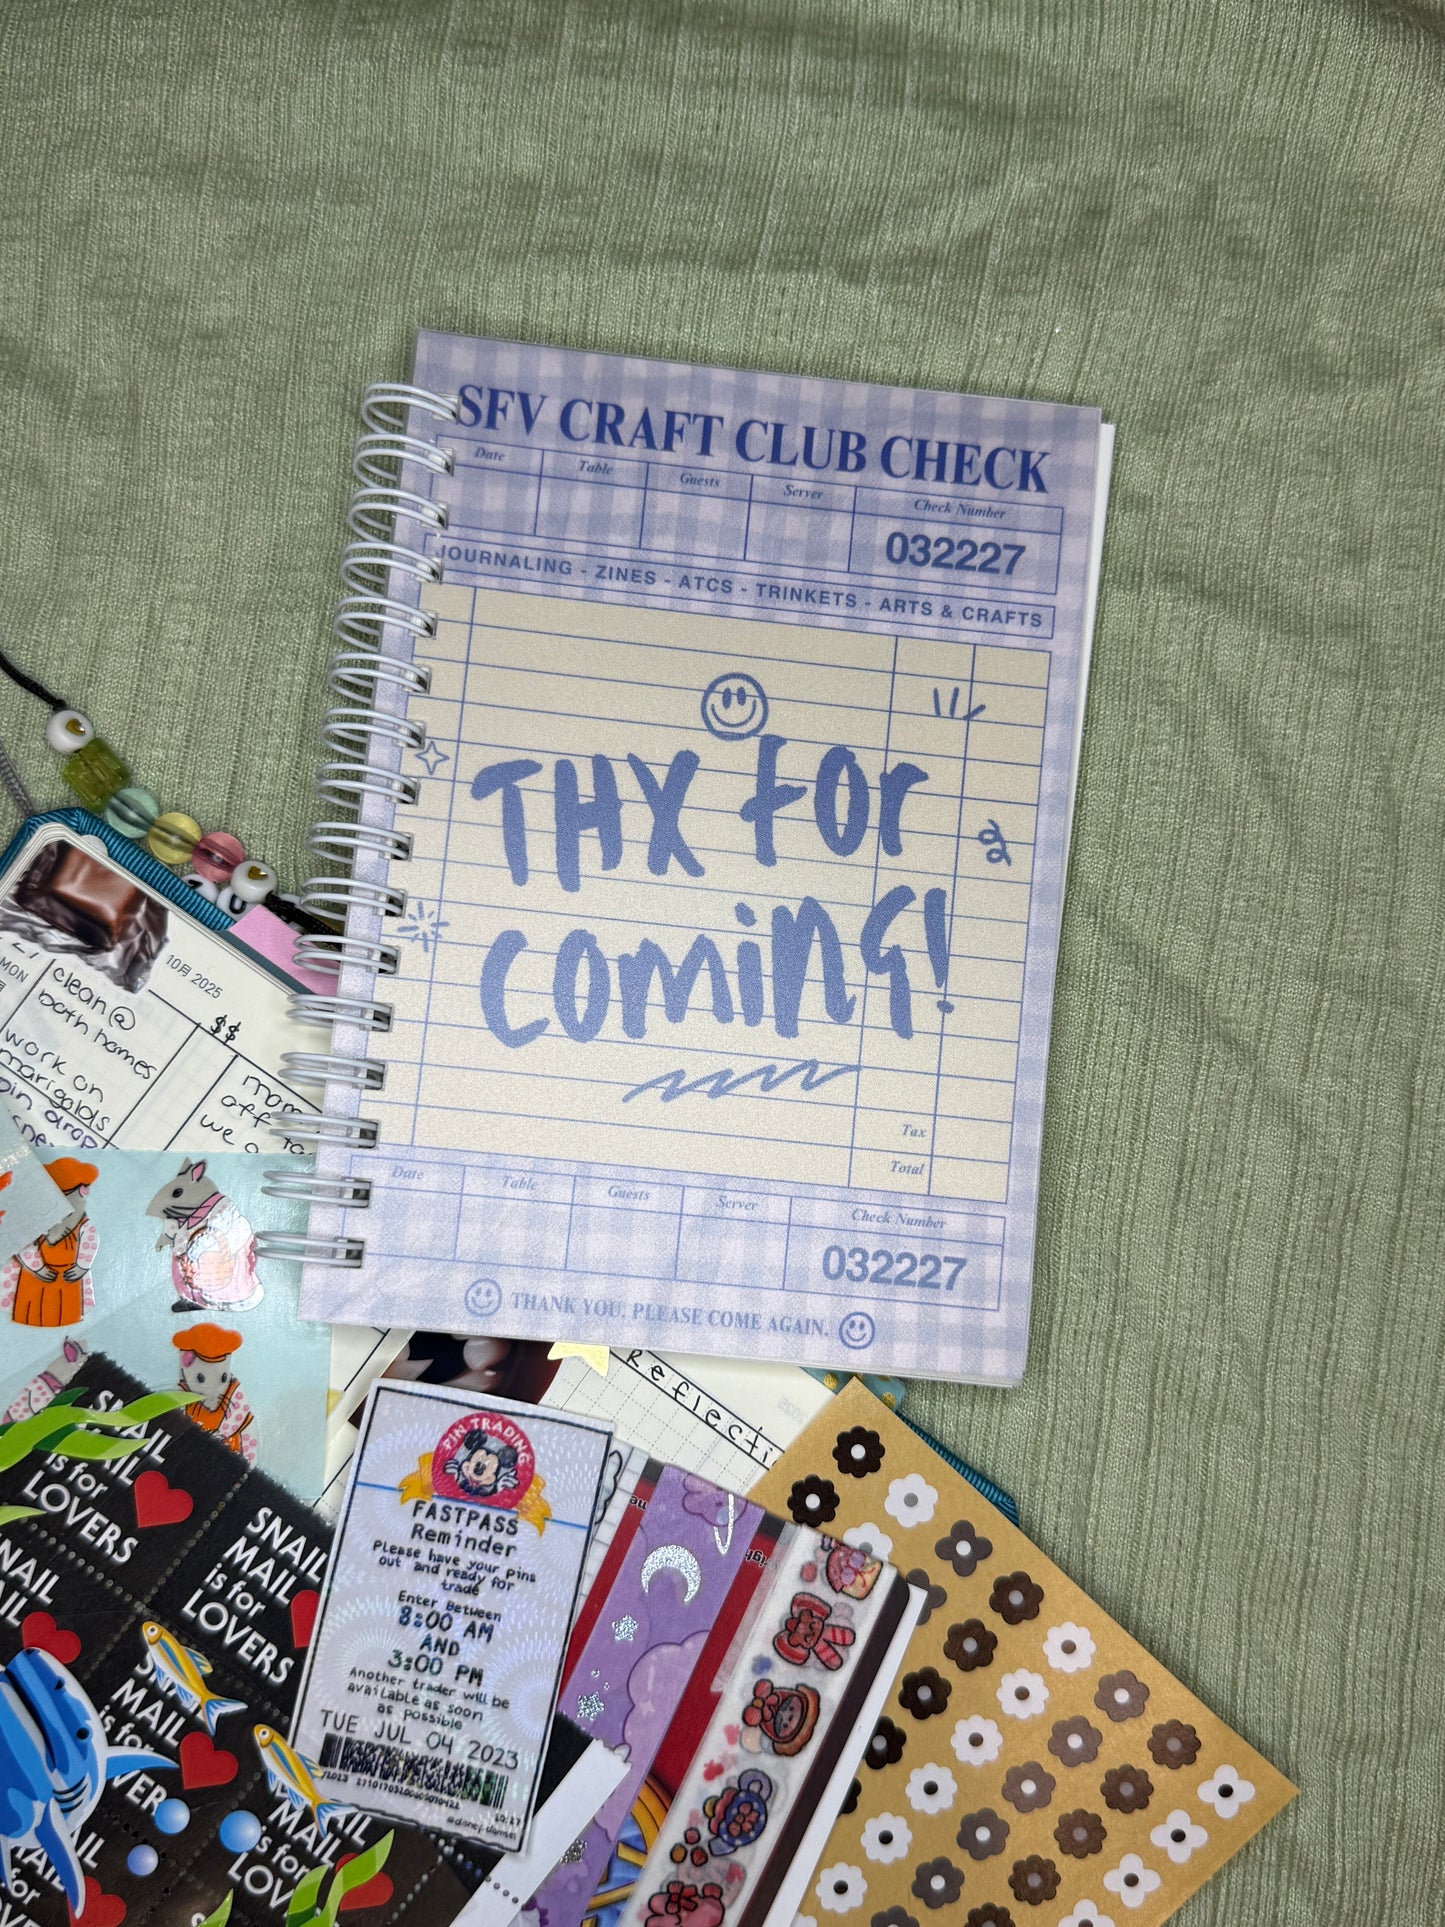 SFV CRAFT CLUB CHECK
Date Table Guests Server Check Number
032227
JOURNALING - ZINES - ATCS - TRINKETS - ARTS & CRAFTS
THX FOR
COMING!
Tax
Total
Date Table Guests Server Check Number
032227
THANK YOU. PLEASE COME AGAIN.
10月 2025
MON
clean @
both homes
work on
marigolds
pin drop
$$
mom
off to
we
Reflecti
SNAIL
MAIL
is for
LOVERS
SNAIL
MAIL
is for
LOVERS
SNAIL
MAIL
is for
LOVERS
MAIL
is for
PIN TRADING
FASTPASS
Reminder
Please have your Pins
out and ready for
trade
Enter Between
8:00 AM
AND
3:00 PM
Another trader will be
available as soon
as possible
TUE JUL 04 2023